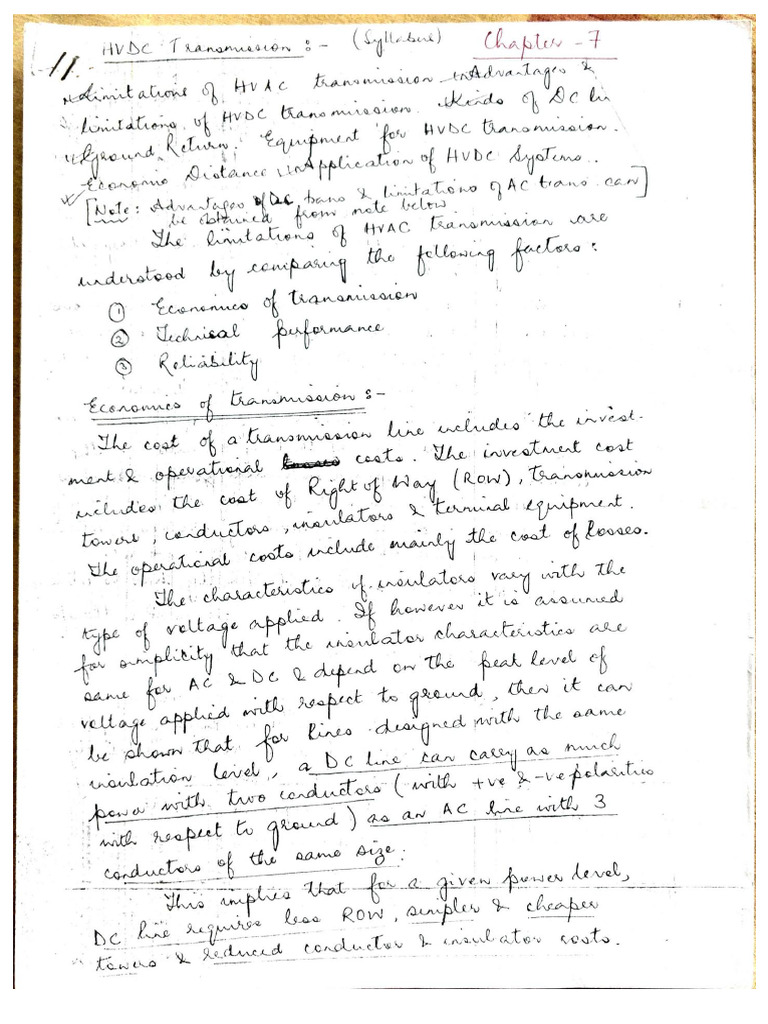 HVDC Transmission :- (Syllabus) Chapter - 7
11.
Limitations of HVAC transmission Advantages &
limitations of HVDC transmission. Kinds of DC li
Ground Return. Equipment for HVDC transmission.
Economic Distance Application of HVDC Systems.
[Note: Advantages of DC trans & limitations of AC trans. can]
be obtained from note below
The limitations of HVAC transmission are
understood by comparing the following factors :
① Economics of transmission
② Technical performance
③ Reliability
Economics of transmission :-
The cost of a transmission line includes the invest-
ment & operational costs. The investment cost
includes the cost of Right of Way (ROW), transmission
towers, conductors, insulators & terminal equipment.
The operational costs include mainly the cost of losses.
The characteristics of insulators vary with the
type of voltage applied. If however it is assumed
for simplicity that the insulator characteristics are
same for AC & DC & depend on the peak level of
voltage applied with respect to ground, then it can
be shown that for lines designed with the same
insulation level, a DC line can carry as much
power with two conductors (with +ve & -ve polarities
with respect to ground) as an AC line with 3
conductors of the same size.
This implies that for a given power level,
DC line requires less ROW, simpler & cheaper
towers & reduced conductor & insulator costs.